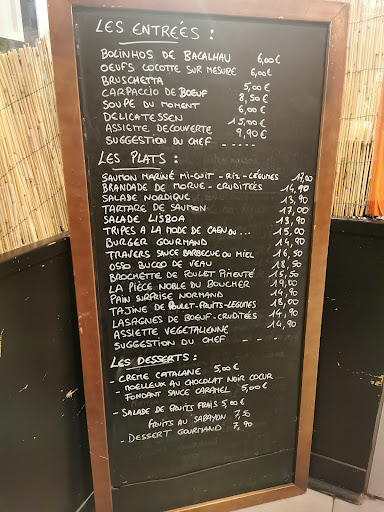 LES ENTRÉES :
BOLINHOS DE BACALHAU 6,00€
OEUFS COCOTTE SUR MESURE 6,00€
BRUSCHETTA 5,00€
CARPACCIO DE BOEUF 8,50€
SOUPE DU MOMENT 6,00€
DELICATESSEN 15,00€
ASSIETTE DECOUVERTE 9,90€
SUGGESTION DU CHEF - - - - -
LES PLATS :
SAUMON MARINÉ MI-CUIT - RIZ - LÉGUMES 17,00
BRANDADE DE MORUE - CRUDITEÉS 14,90
SALADE NORDIQUE 13,90
TARTARE DE SAUMON 17,00
SALADE LISBOA 13,90
TRIPES A LA MODE DE CAEN OU... 15,00
BURGER GOURMAND 14,90
TRAVERS SAUCE BARBECUE OU MIEL 16,50
OSSO BUCCO DE VEAU 18,50
BROCHETTE DE POULET PIMENTÉ 15,50
LA PIÈCE NOBLE DU BOUCHER 19,00
PAIN SURPRISE NORMAND 14,90
TAJINE DE POULET-FRUITS-LEGUMES 18,00
LASAGNES DE BOEUF-CRUDITEÉS 14,90
ASSIETTE VEGETALIENNE 14,90
SUGGESTION DU CHEF - - -
LES DESSERTS :
- CREME CATALANE 5,00€
- MOELLEUX AU CHOCOLAT NOIR COEUR
FONDANT SAUCE CARAMEL 5,00€
- SALADE DE FRUITS FRAIS 5,00€
FRUITS AU SABAYON 7,50
- DESSERT GOURMAND 7,90